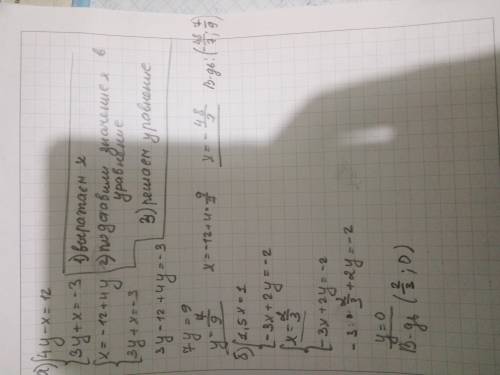 а) { 4y-x=12
{ 3y+x=-3
{ x=-12+4y
{ 3y+x=-3
3y-12+4y=-3
1) выражаем x
2) подставили значение x в
уравнение
3) решаем уравнение
7y=9
y=7/9
x=-12+4·9/7
x=-48/7
В-дь: (-48/7; 7/9)
б) { 1,5x=1
{ -3x+2y=-2
{ x=2/3
{ -3x+2y=-2
-3·2/3+2y=-2
y=0
В-дь (2/3; 0)